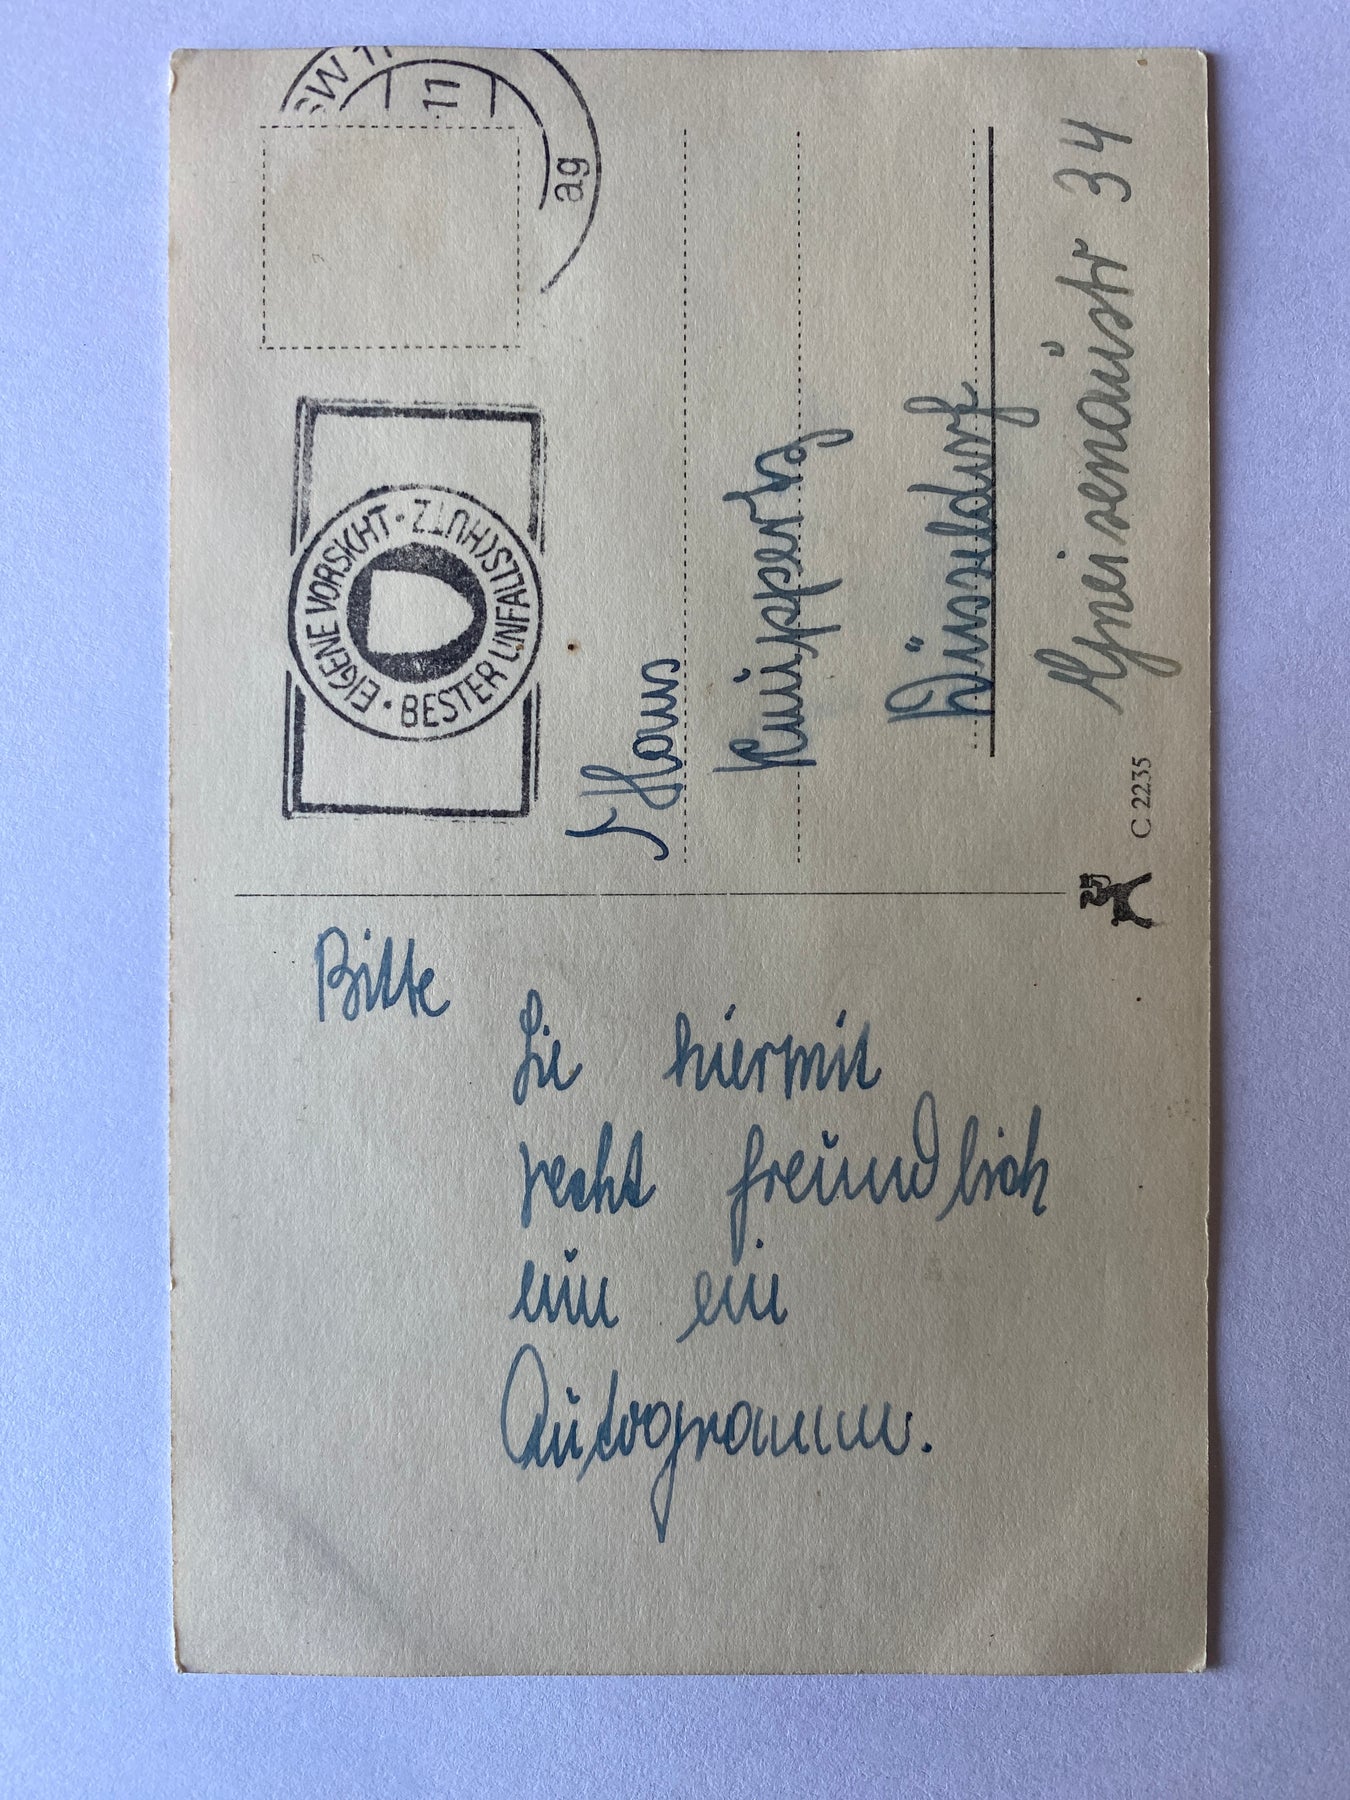 Bitte
Sie hiermit
recht freundlich
um ein
Autogramm.
SW 11
11
ag
EIGENE VORSICHT · BESTER UNFALLSCHUTZ ·
Hans
Knippertz
Düsseldorf
Gneisenaustr 34
C 2235